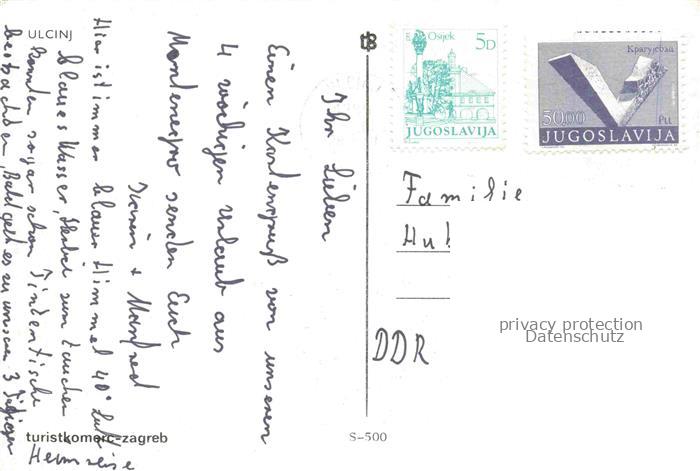 ULCINJ
Ihr Lieben
Einen Kartengruß von unserem
4 wöchigen Urlaub aus
Montenegro senden Euch
+ Manfred
Hier ist immer blauer Himmel 40° Luft
blaues Wasser, herbei zum tauchen
konnten sogar schon Tintenfische
beobachten, Bald geht es zu unserer 3 Tägigen
Heimreise
turistkomerc-zagreb
S-500
Osijek
5D
JUGOSLAVIJA
Крагујевац
50.00
Ptt
JUGOSLAVIJA
Familie
DDR
privacy protection
Datenschutz